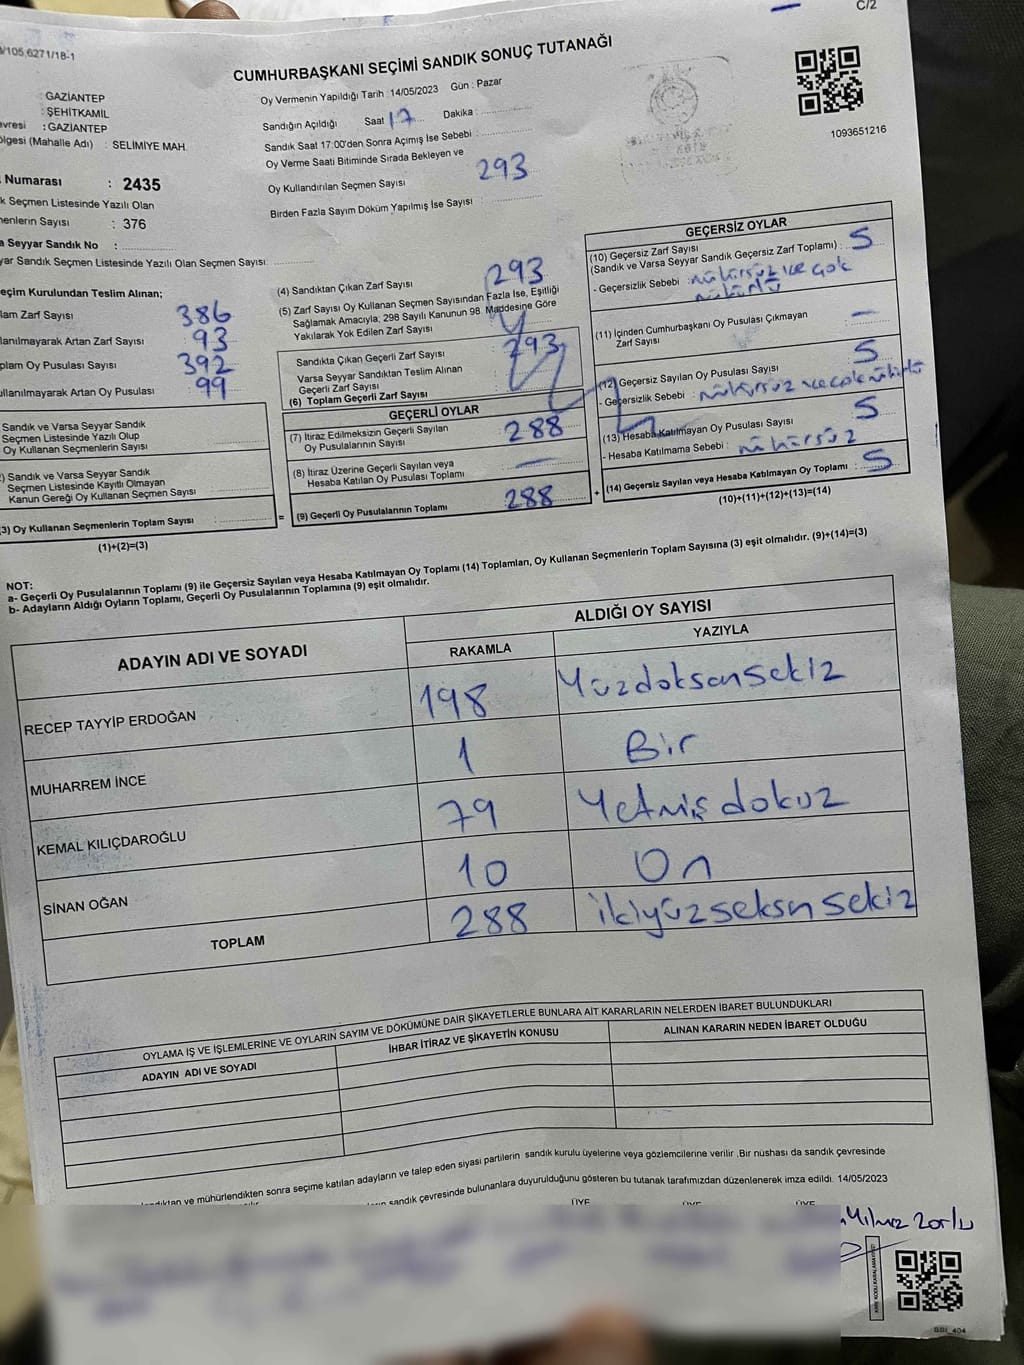 C/2
/105,6271/18-1
CUMHURBAŞKANI SEÇİMİ SANDIK SONUÇ TUTANAĞI
: GAZİANTEP
: ŞEHİTKAMİL
evresi : GAZİANTEP
ölgesi (Mahalle Adı) : SELIMIYE MAH.
Numarası : 2435
k Seçmen Listesinde Yazılı Olan
menlerin Sayısı : 376
a Seyyar Sandık No :
yar Sandık Seçmen Listesinde Yazılı Olan Seçmen Sayısı:
Oy Vermenin Yapıldığı Tarih : 14/05/2023 Gün : Pazar
Sandığın Açıldığı Saat 17 Dakika :
Sandık Saat 17:00'den Sonra Açımış İse Sebebi :
Oy Verme Saati Bitiminde Sırada Bekleyen ve
Oy Kullandırılan Seçmen Sayısı 293
Birden Fazla Sayım Döküm Yapılmış İse Sayısı :
1093651216
eçim Kurulundan Teslim Alınan;
lam Zarf Sayısı 386
lanılmayarak Artan Zarf Sayısı 93
plam Oy Pusulası Sayısı 392
ullanılmayarak Artan Oy Pusulası 99
Sandık ve Varsa Seyyar Sandık
Seçmen Listesinde Yazılı Olup
Oy Kullanan Seçmenlerin Sayısı
) Sandık ve Varsa Seyyar Sandık
Seçmen Listesinde Kayıtlı Olmayan
Kanun Gereği Oy Kullanan Seçmen Sayısı
(3) Oy Kullanan Seçmenlerin Toplam Sayısı :
(1)+(2)=(3)
(4) Sandıktan Çıkan Zarf Sayısı 293
(5) Zarf Sayısı Oy Kullanan Seçmen Sayısından Fazla İse, Eşitliği
Sağlamak Amacıyla; 298 Sayılı Kanunun 98. Maddesine Göre
Yakılarak Yok Edilen Zarf Sayısı
Sandıkta Çıkan Geçerli Zarf Sayısı 293
Varsa Seyyar Sandıktan Teslim Alınan
Geçerli Zarf Sayısı
(6) Toplam Geçerli Zarf Sayısı
GEÇERLİ OYLAR
(7) İtiraz Edilmeksizin Geçerli Sayılan
Oy Pusulalarının Sayısı 288
(8) İtiraz Üzerine Geçerli Sayılan veya
Hesaba Katılan Oy Pusulası Toplamı —
= (9) Geçerli Oy Pusulalarının Toplamı 288 +
GEÇERSİZ OYLAR
(10) Geçersiz Zarf Sayısı
(Sandık ve Varsa Seyyar Sandık Geçersiz Zarf Toplamı) : 5
- Geçersizlik Sebebi : mühürsüz ve çok
mühürlü
(11) İçinden Cumhurbaşkanı Oy Pusulası Çıkmayan
Zarf Sayısı —
(12) Geçersiz Sayılan Oy Pusulası Sayısı 5
- Geçersizlik Sebebi : mühürsüz ve çok mühürlü
(13) Hesaba Katılmayan Oy Pusulası Sayısı 5
- Hesaba Katılmama Sebebi : mühürsüz
(14) Geçersiz Sayılan veya Hesaba Katılmayan Oy Toplamı : 5
(10)+(11)+(12)+(13)=(14)
NOT:
a- Geçerli Oy Pusulalarının Toplamı (9) ile Geçersiz Sayılan veya Hesaba Katılmayan Oy Toplamı (14) Toplamları, Oy Kullanan Seçmenlerin Toplam Sayısına (3) eşit olmalıdır. (9)+(14)=(3)
b- Adayların Aldığı Oyların Toplamı, Geçerli Oy Pusulalarının Toplamına (9) eşit olmalıdır.
ADAYIN ADI VE SOYADI
ALDIĞI OY SAYISI
RAKAMLA YAZIYLA
RECEP TAYYİP ERDOĞAN 198 Yüzdoksansekiz
MUHARREM İNCE 1 Bir
KEMAL KILIÇDAROĞLU 79 Yetmiş dokuz
SİNAN OĞAN 10 On
TOPLAM 288 ikiyüz seksen sekiz
OYLAMA İŞ VE İŞLEMLERİNE VE OYLARIN SAYIM VE DÖKÜMÜNE DAİR ŞİKAYETLERLE BUNLARA AİT KARARLARIN NELERDEN İBARET BULUNDUKLARI
ADAYIN ADI VE SOYADI İHBAR İTİRAZ VE ŞİKAYETİN KONUSU ALINAN KARARIN NEDEN İBARET OLDUĞU
ve mühürlendikten sonra seçime katılan adayların ve talep eden siyasi partilerin sandık kurulu üyelerine veya gözlemcilerine verilir .Bir nüshası da sandık çevresinde
sandık çevresinde bulunanlara duyurulduğunu gösteren bu tutanak tarafımızdan düzenlenerek imza edildi. 14/05/2023
ÜYE ÜYE ÜYE
Yılmaz Zorlu